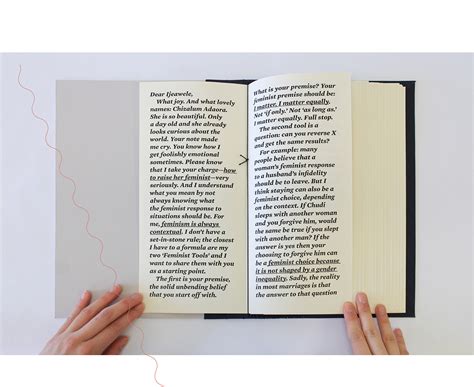 Dear Ijeawele,
What joy. And what lovely
names: Chizalum Adaora.
She is so beautiful. Only
a day old and she already
looks curious about the
world. Your note made
me cry. You know how I
get foolishly emotional
sometimes. Please know
that I take your charge—how
to raise her feminist—very
seriously. And I understand
what you mean by not
always knowing what
the feminist response to
situations should be. For
me, feminism is always
contextual. I don't have a
set-in-stone rule; the closest
I have to a formula are my
two 'Feminist Tools' and I
want to share them with you
as a starting point.
The first is your premise,
the solid unbending belief
that you start off with.
>
What is your premise? Your
feminist premise should be:
I matter. I matter equally.
Not 'if only.' Not 'as long as.'
I matter equally. Full stop.
The second tool is a
question: can you reverse X
and get the same results?
For example: many
people believe that a
woman's feminist response
to a husband's infidelity
should be to leave. But I
think staying can also be a
feminist choice, depending
on the context. If Chudi
sleeps with another woman
and you forgive him, would
the same be true if you slept
with another man? If the
answer is yes then your
choosing to forgive him can
be a feminist choice because
it is not shaped by a gender
inequality. Sadly, the reality
in most marriages is that
the answer to that question